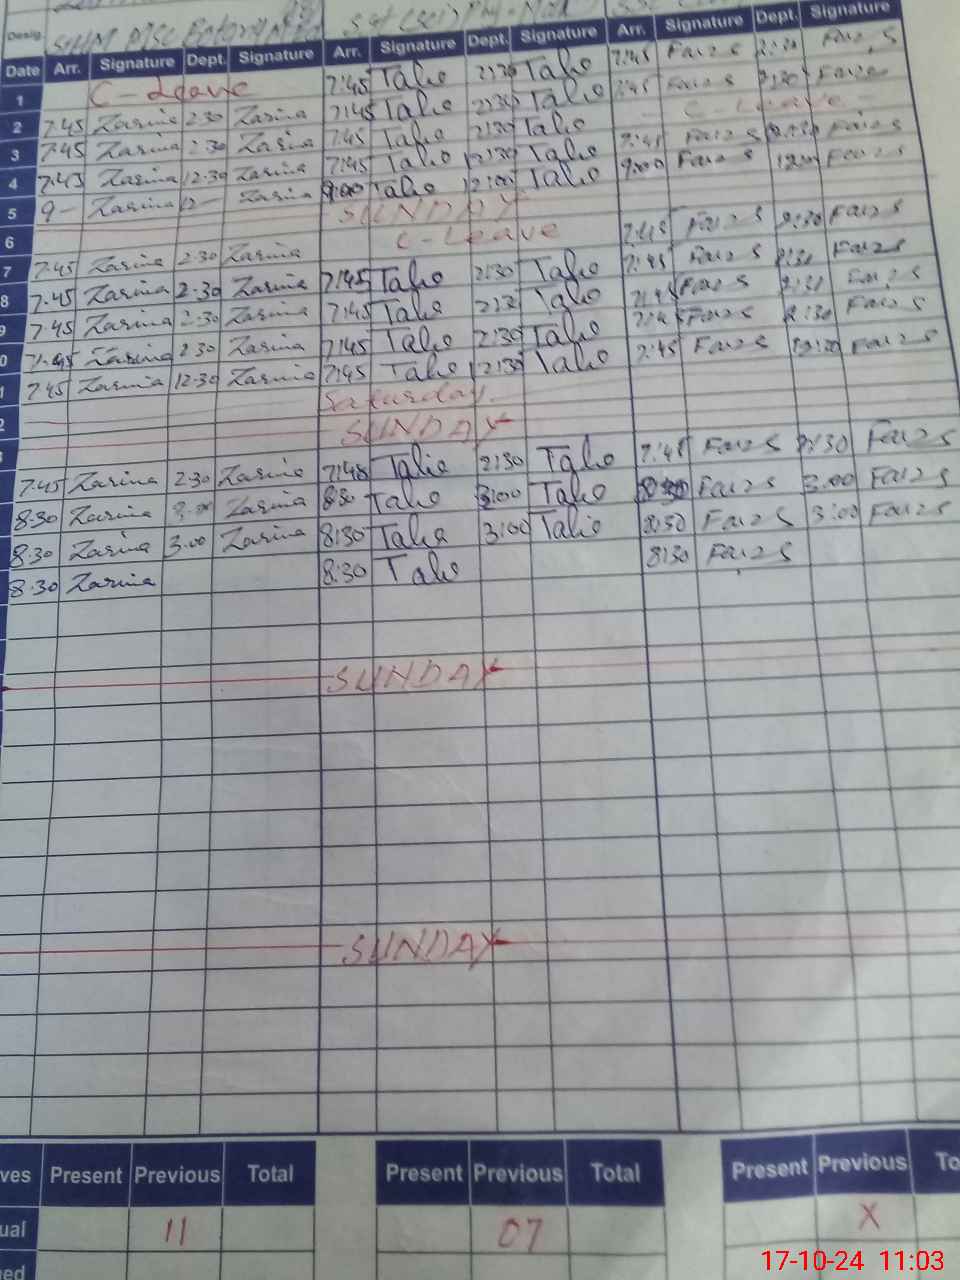 Desig.
Date Arr. Signature Dept. Signature Arr. Signature Dept. Signature Arr. Signature Dept. Signature
1 C-Leave 7:45 Talie 2:30 Talie 7:45 Faizs 2:30 Faizs
2 7.45 Zarina 2.30 Zarina 7:45 Talie 2:30 Talie 7:45 Faizs 2:30 Faizs
3 7.45 Zarina 2.30 Zarina 7:45 Talie 2:30 Talie C-Leave
4 7.45 Zarina 12.30 Zarina 7:45 Talie 12:30 Talie 7:45 Faizs Faizs
5 9- Zarina 12- Zarina 9:00 Talie 12:00 Talie 9:00 Faizs 12:00 Faizs
6 SUNDAY
7 7.45 Zarina 2.30 Zarina C-Leave 7:45 Faizs 2:30 Faizs
8 7.45 Zarina 2.30 Zarina 7:45 Talie 2:30 Talie 7:45 Faizs 2:30 Faizs
9 7.45 Zarina 2.30 Zarina 7:45 Talie 2:30 Talie 7:45 Faizs 2:30 Faizs
0 7.45 Zarina 2.30 Zarina 7:45 Talie 2:30 Talie 7:45 Faizs 2:30 Faizs
1 7.45 Zarina 12.30 Zarina 7:45 Talie 12:30 Talie 7:45 Faizs 12:30 Faizs
2 Saturday.
SUNDAY
7.45 Zarina 2.30 Zarina 7:45 Talie 2:30 Talie 7:45 Faizs 2:30 Faizs
8.30 Zarina 3.00 Zarina 8:30 Talie 3:00 Talie 8:30 Faizs 3:00 Faizs
8.30 Zarina 3.00 Zarina 8:30 Talie 3:00 Talie 8:30 Faizs 3:00 Faizs
8.30 Zarina 8:30 Talie 8:30 Faizs
SUNDAY
SUNDAY
ves Present Previous Total Present Previous Total Present Previous To
ual 11 07 X
ed
17-10-24 11:03